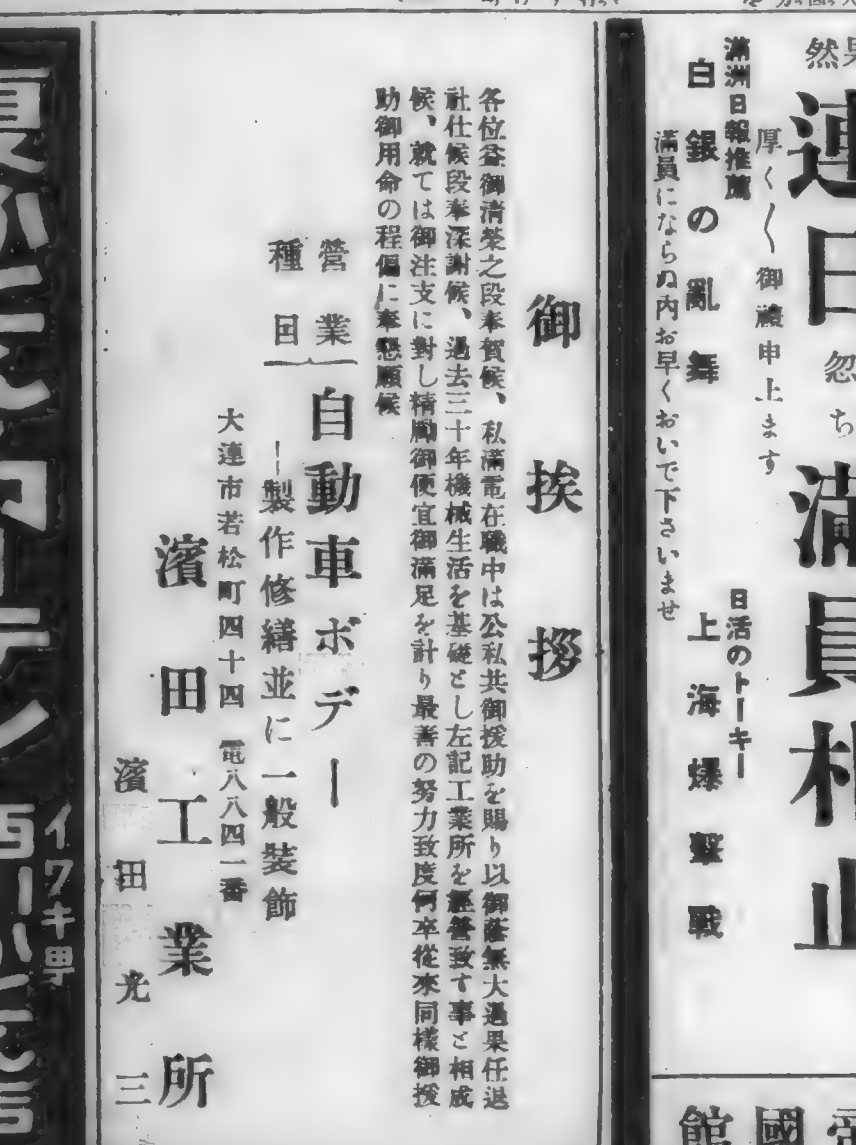 連日
忽ち
満員札止
厚く〱御禮申上ます
滿洲日報推薦
白銀の亂舞
日活のトーキー
上海爆擊戰
滿員にならぬ内お早くおいで下さいませ
國
館
御挨拶
各位益御淸榮之段奉賀候、私滿電在職中は公私共御援助を賜り以御蔭無大過果任退
社仕候段奉深謝候、過去三十年機械生活を基礎とし左記工業所を經營致す事と相成
候、就ては御注文に對し精勵御便宜御滿足を計り最善の努力致度何卒從來同樣御援
助御用命の程偏に奉懇願候
營業
種目
自動車ボデー
―製作修繕並に一般裝飾
大連市若松町四十四 電八八四一番
濱田工業所
濱田光三
イワキ